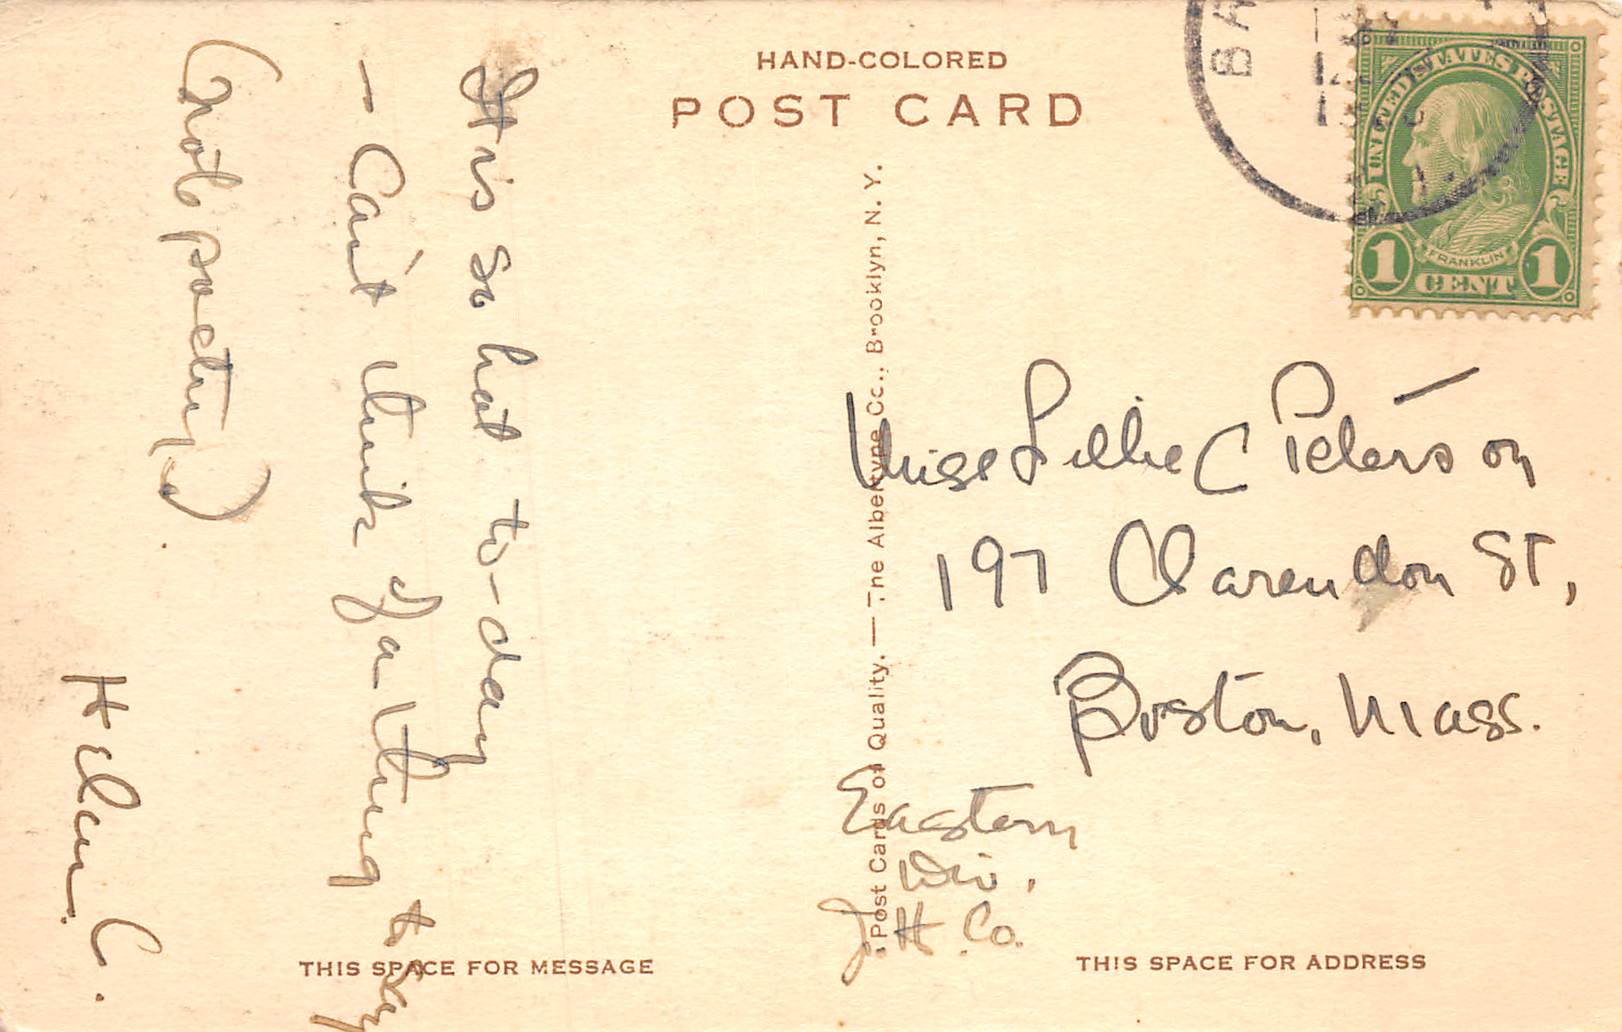 HAND-COLORED
POST CARD
It is so hot to-day
– Can't think of a thing to say
(Note poetry.)
Helen C.
THIS SPACE FOR MESSAGE
Post Cards of Quality. — The Albertype Co., Brooklyn, N. Y.
BA
UNITED STATES POSTAGE
FRANKLIN
1 CENT 1
Miss Lillie C Peterson
197 Clarendon St,
Boston, Mass.
Eastern
Div.
J. H. Co.
THIS SPACE FOR ADDRESS